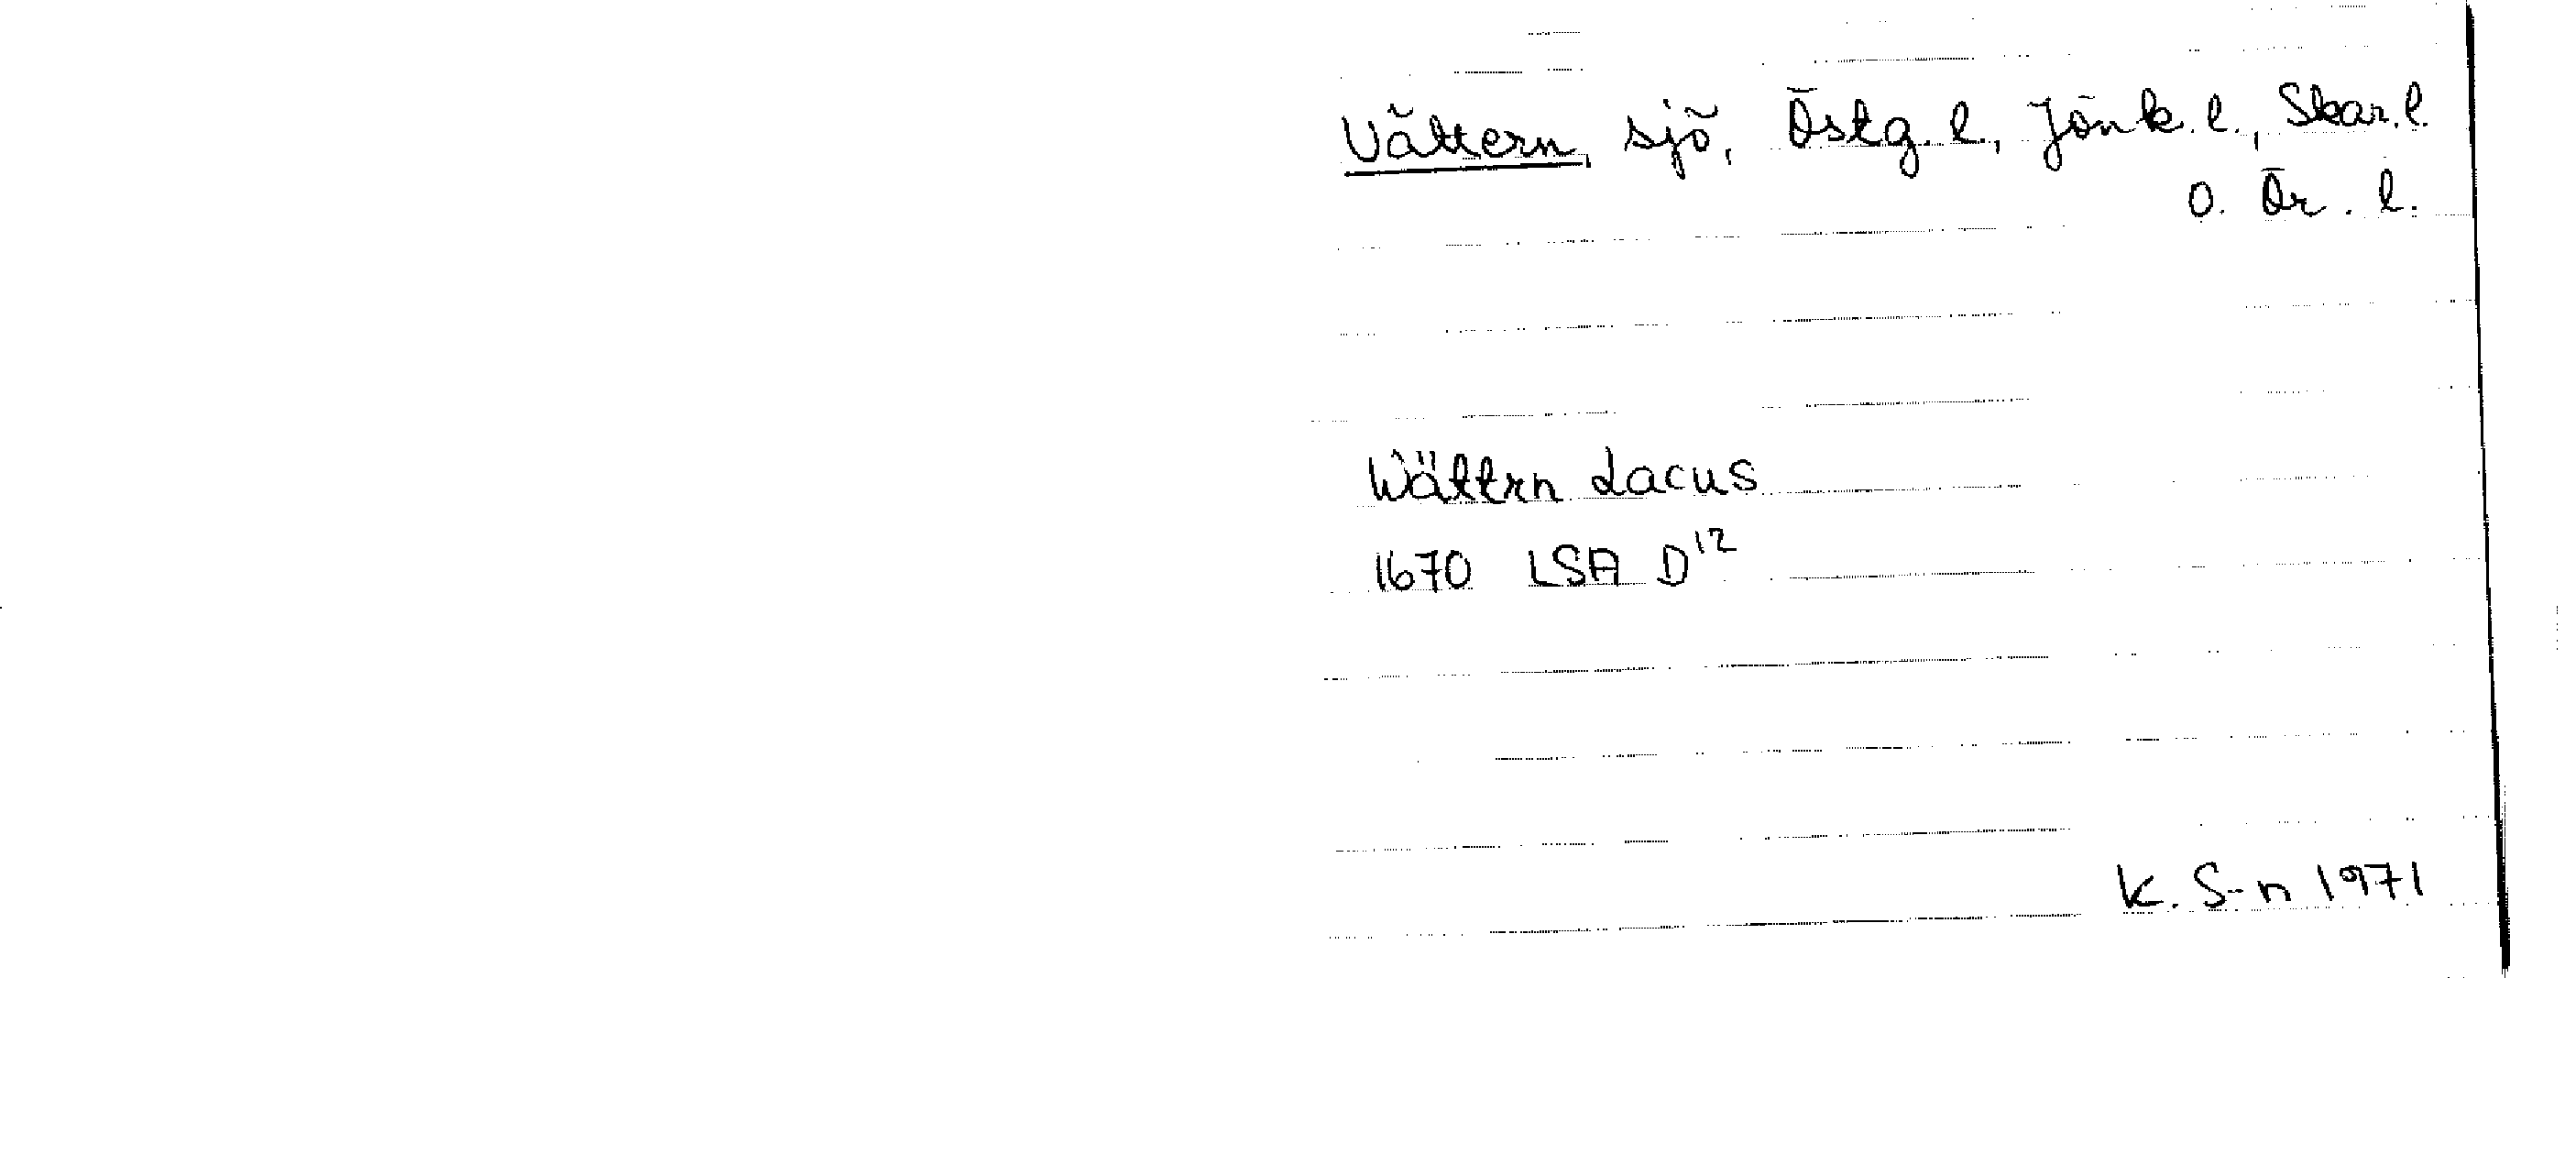 Vättern, sjö, Östg. l., Jönk. l., Skar. l.
o. Ör. l.
Wättrn Lacus
1670 LSA D¹²
K. S-n 1971